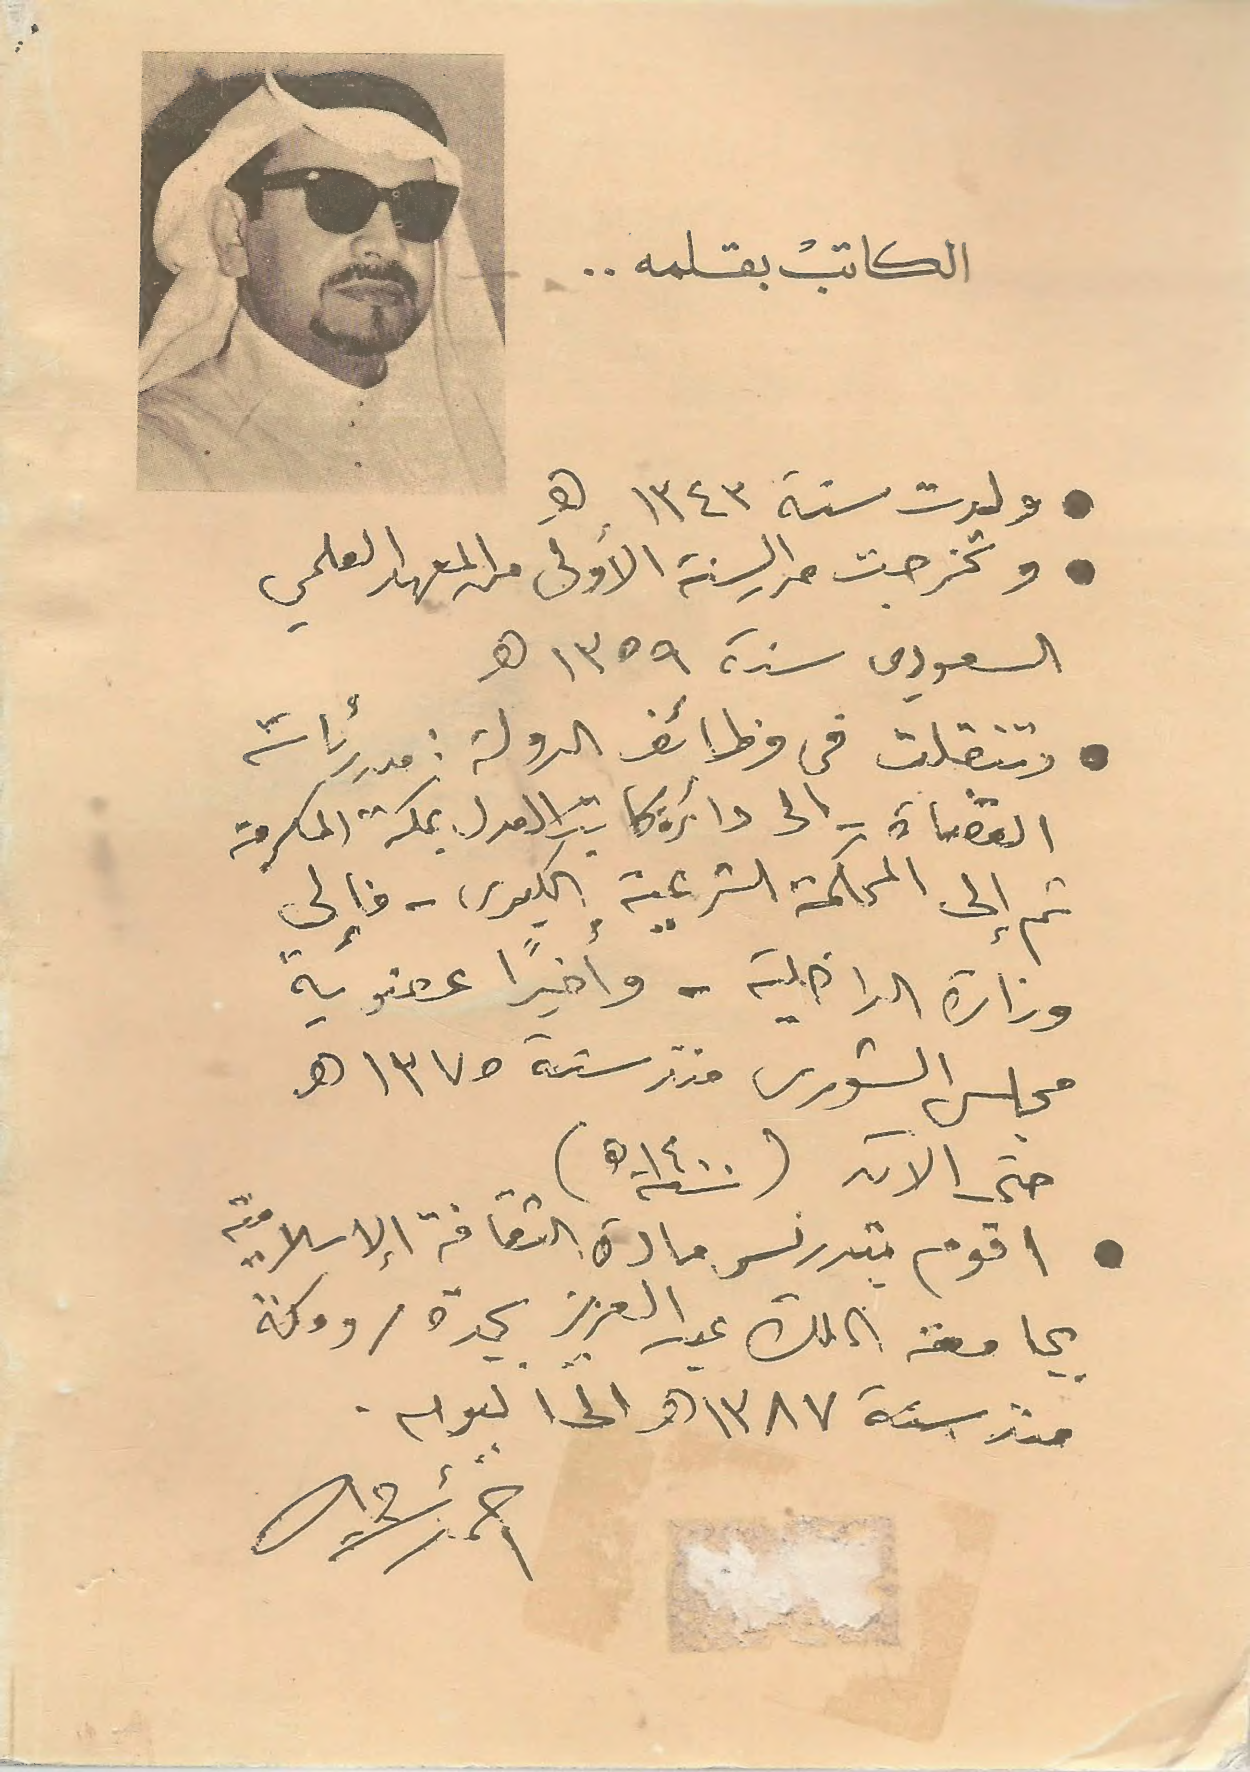 الكاتب بقلمه ..
● ولدت سنة ١٣٤٣ هـ
● وتخرجت من السنة الأولى من المعهد العلمي
السعودي سنة ١٣٥٩ هـ
● وتنقلت في وظائف الدولة : من رئاسة
القضاة - الى دائرة كاتب العدل بمكة المكرمة
ثم إلى المحكمة الشرعية الكبرى - فإلى
وزارة الداخلية - وأخيرًا عضوية
مجلس الشورى منذ سنة ١٣٧٥ هـ
حتى الآن (سنة ١٤٠٠هـ)
● اقوم بتدريس مادة الثقافة الإسلامية
بجامعة الملك عبد العزيز بجدة / ومكة
منذ سنة ١٣٨٧هـ الى اليوم .